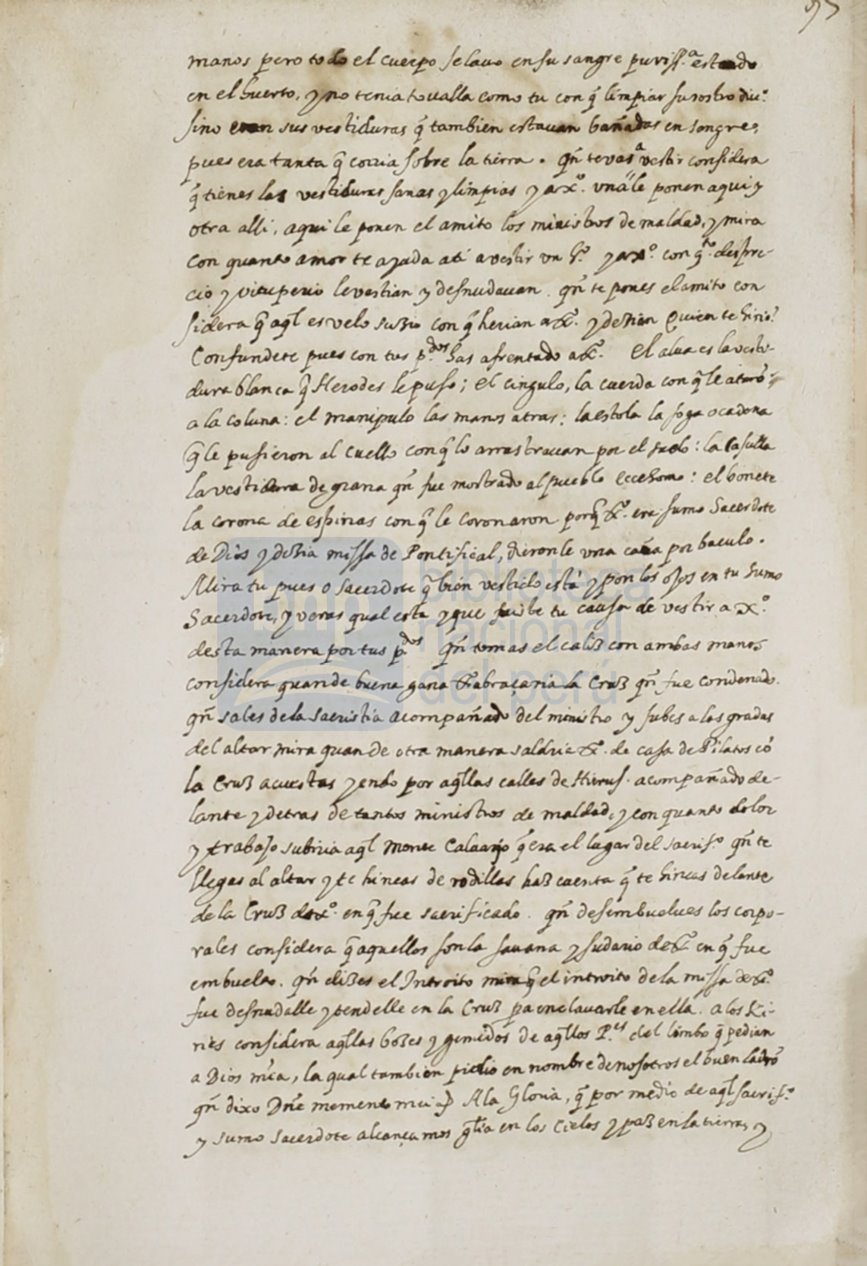 97
manos pero todo el cuerpo se lavo en su sangre puriss.ª estando
en el huerto, y no tenia tovalla como tu con q̃ limpiar su rostro diu.º
sino eran sus vestiduras q̃ tambien estavan bañadas en sangre,
pues era tanta q̃ corria sobre la tierra. qñ te vas a vestir considera
q̃ tienes las vestiduras sanas y limpias y a xº. una le ponen aqui y
otra alli, aqui le ponen el amito los ministros de maldad, y mira
con quanto amor te ayuda ati a vestir un h.º y a xº. con q.to despre-
cio y vituperio le vestian y desnudavan. qñ te pones el amito con
sidera q̃ aq̃l es velo suzio con q̃ herian a xº. y dezian Quien te hirio?
Confundete pues con tus p.dos has afrentado a xº. El alva es la vesti-
dura blanca q̃ Herodes le puso; el cingulo, la cuerda con q̃ le ataron
a la coluna: el manipulo las manos atras; la estola la soga o cadena
q̃ le pusieron al cuello con q̃ lo arrastravan por el suelo: la casulla
la vestidura de grana qñ fue mostrado al pueblo Ecce homo: el bonete
la corona de espinas con q̃ le coronaron porq̃ xº. era sumo Sacerdote
de Dios y dezia missa de Pontifical, dieronle una caña por baculo.
Mira tu pues o sacerdote q̃ bien vestido està y pon los ojos en tu sumo
Sacerdote, y veras qual esta y que fuiste tu causa de vestir a xº.
desta manera por tus p.dos qñ tomas el caliz con ambas manos
considera quan de buena gana xº abraçaria la Cruz qñ fue condenado.
qñ sales de la sacristia acompañado del ministro y subes a las gradas
del altar mira quan de otra manera saldria xº. de casa de Pilatos cõ
la Cruz acuestas yendo por aq̃llas calles de Hierus. acompañado de-
lante y detras de tantos ministros de maldad, y con quanto dolor
y trabajo subiria aq̃l monte Calvario q̃ era el lugar del sacrif.º qñ te
llegas al altar y te hincas de rodillas haz cuenta q̃ te hincas delante
de la Cruz de xº. en q̃ fue sacrificado. qñ desembuelves los corpo-
rales considera q̃ aquellos son la savana y sudario de xº. en q̃ fue
embuelto. qñ dizes el Introito mira q̃ el introito de la missa de xº.
fue desnudalle y tendelle en la Cruz pa enclavarle en ella. a los Ki-
ries considera aq̃llas bozes y gemidos de aq̃llos P.es del limbo q̃ pedian
a Dios mĩa, la qual tambien pidio en nombre de nosotros el buen ladrõ
qñ dixo Dñe memento mei A la Gloria, q̃ por medio de aq̃l sacrif.º
y sumo sacerdote alcançamos gl̃ia en los cielos y paz en la tierra, y
biblioteca
nacional
del perú